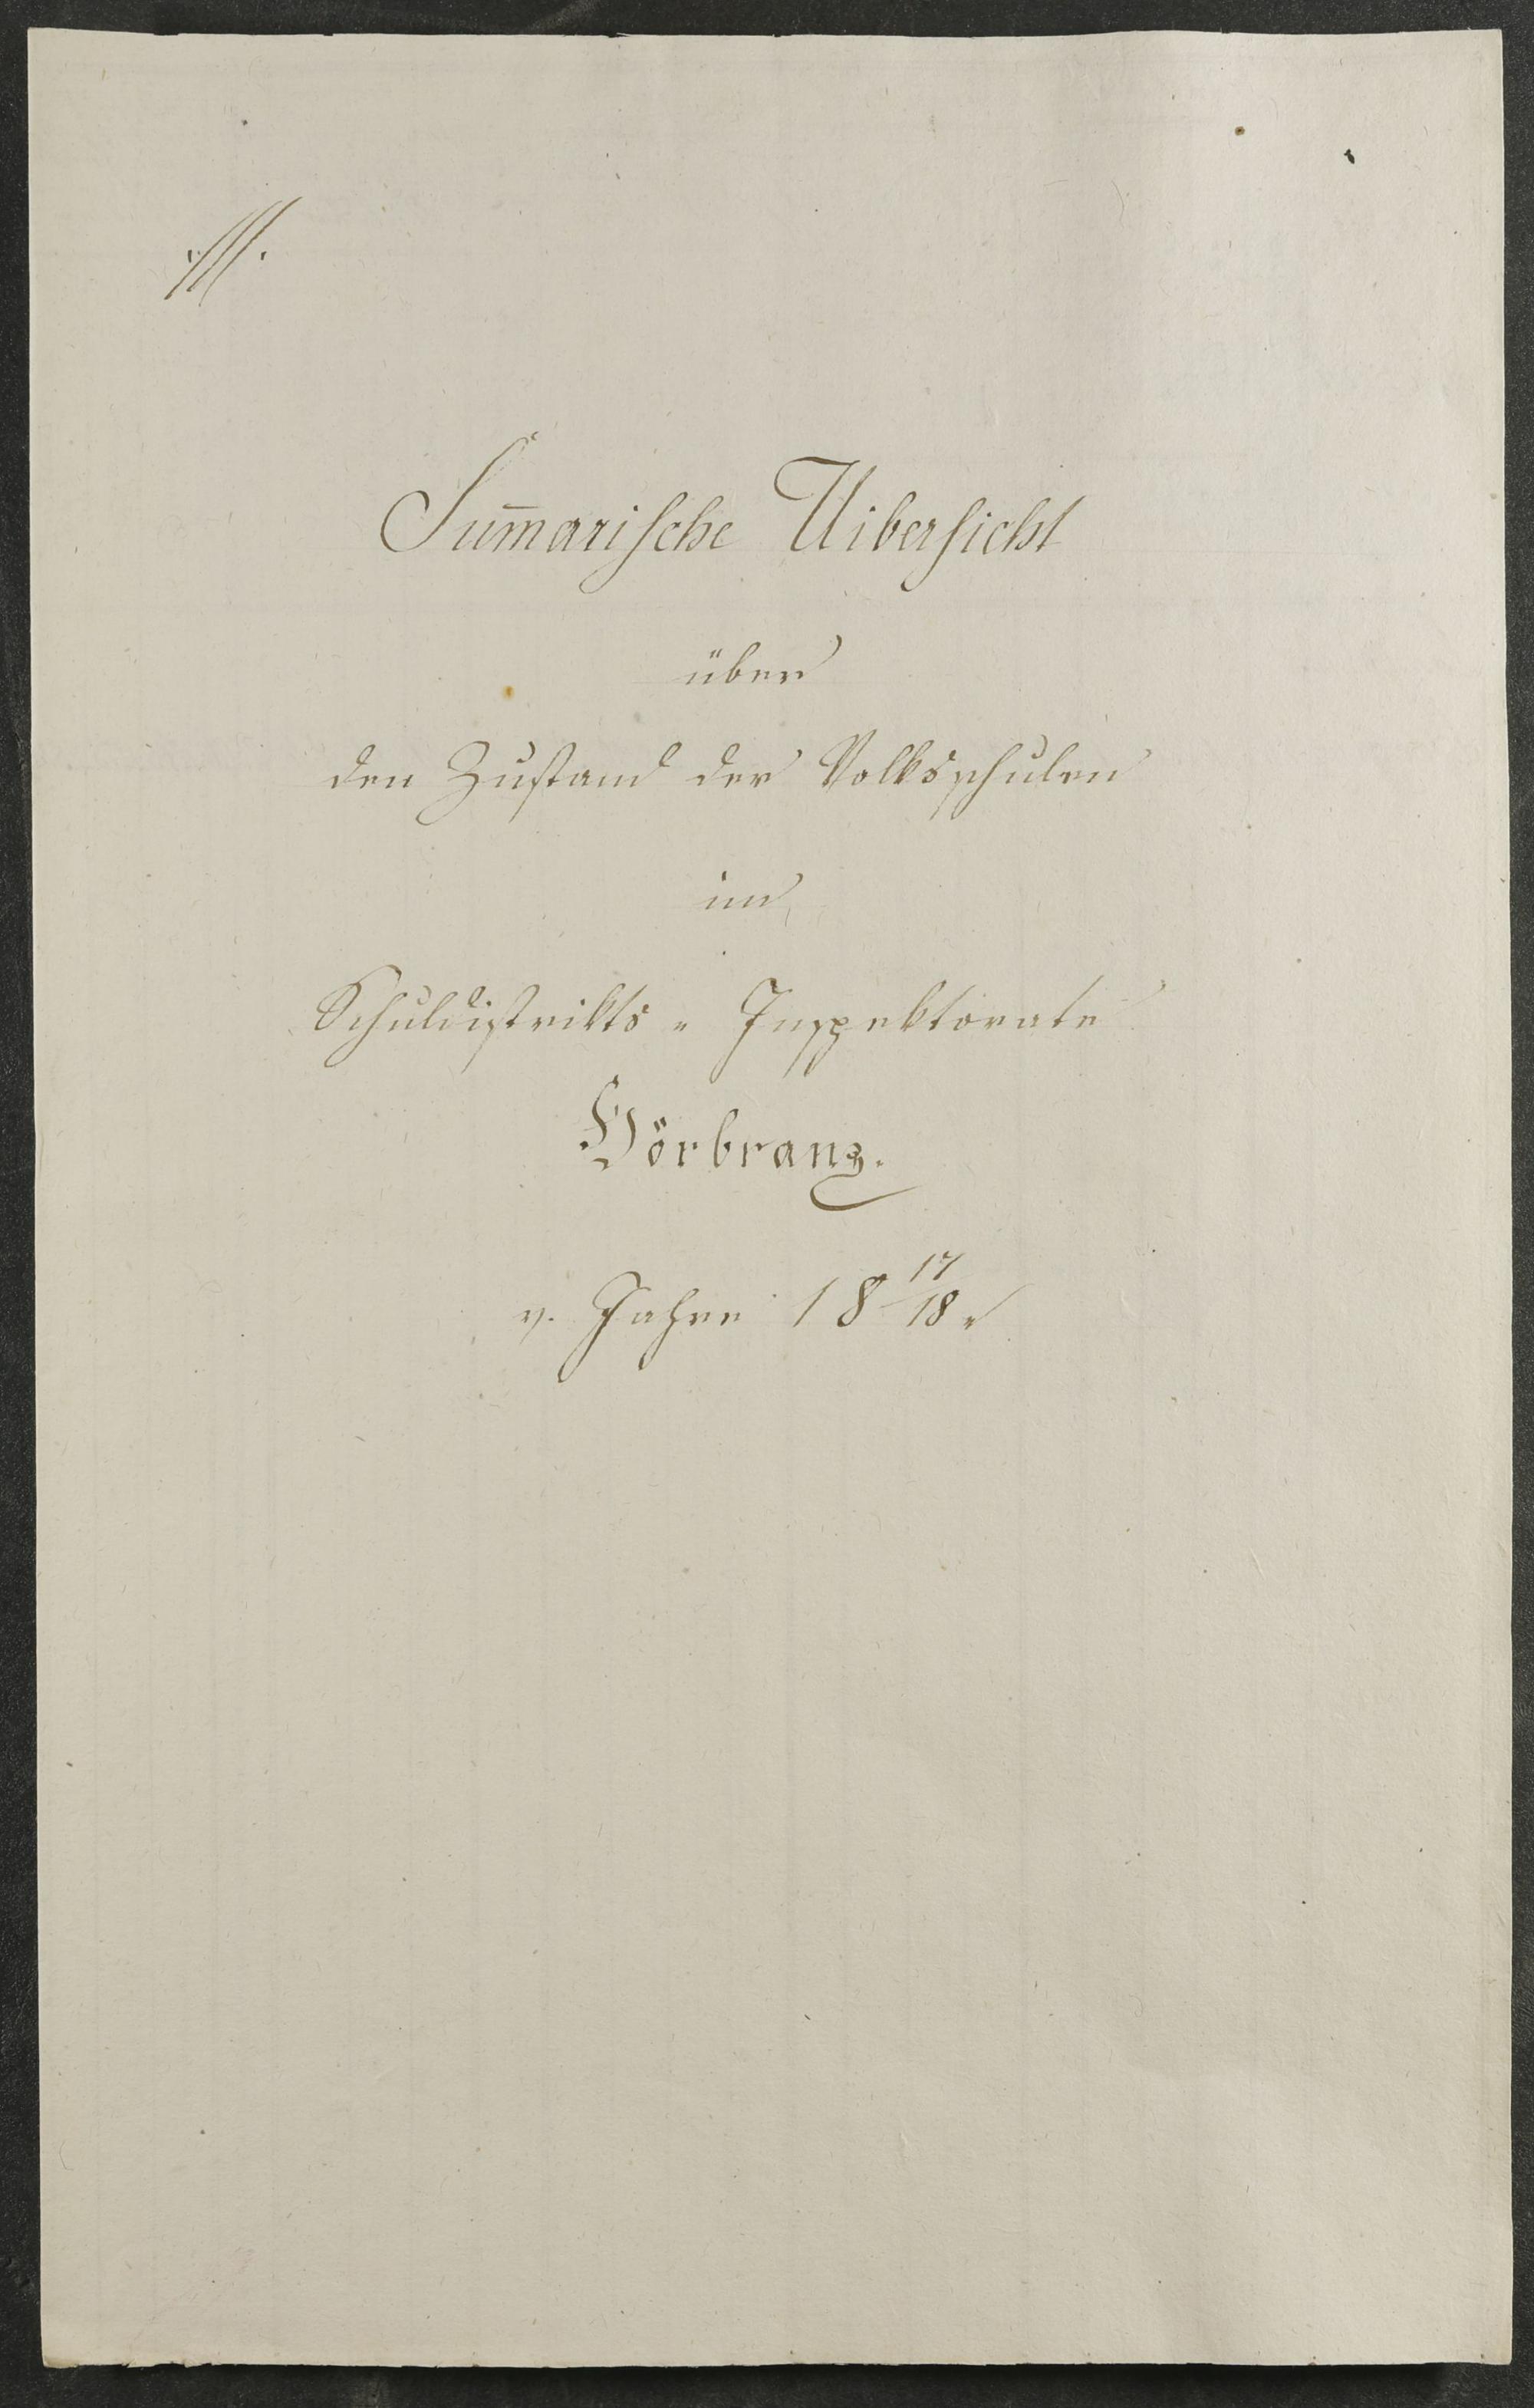 .///.
Sum̄arische Uibersicht
über
den Zustand der Volksschulen
im
Schuldistrikts - Inspektorate
Hörbranz.
v. Jahre 18 17/18.